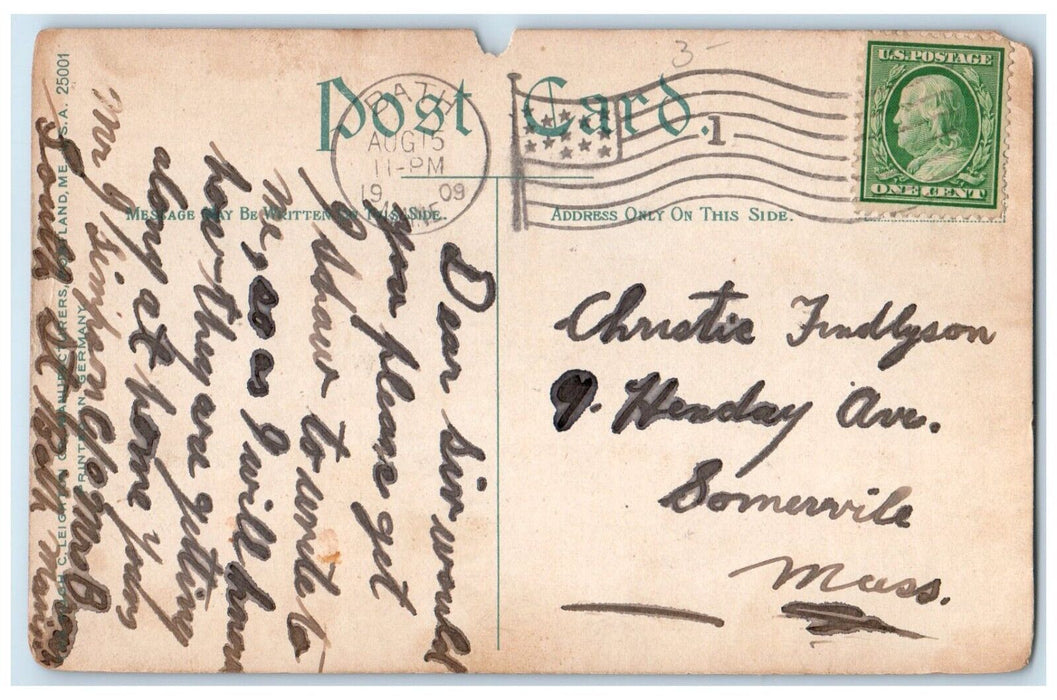 Post Card.
BATH
AUG 15
11-PM
1909
MAINE
1
3-
U.S. POSTAGE
ONE CENT
MESSAGE MAY BE WRITTEN ON THIS SIDE.
ADDRESS ONLY ON THIS SIDE.
Christie Findlyson
9. Henday Ave.
Somervile
Mass.
Dear Sir would
you please get
J Shaw to write to
me, so as I will know
how they are getting
along at home yours
Mr J Simpson
South
HUGH C. LEIGHTON CO., MANUFACTURERS, PORTLAND, ME., U.S.A. 25001
PRINTED IN GERMANY